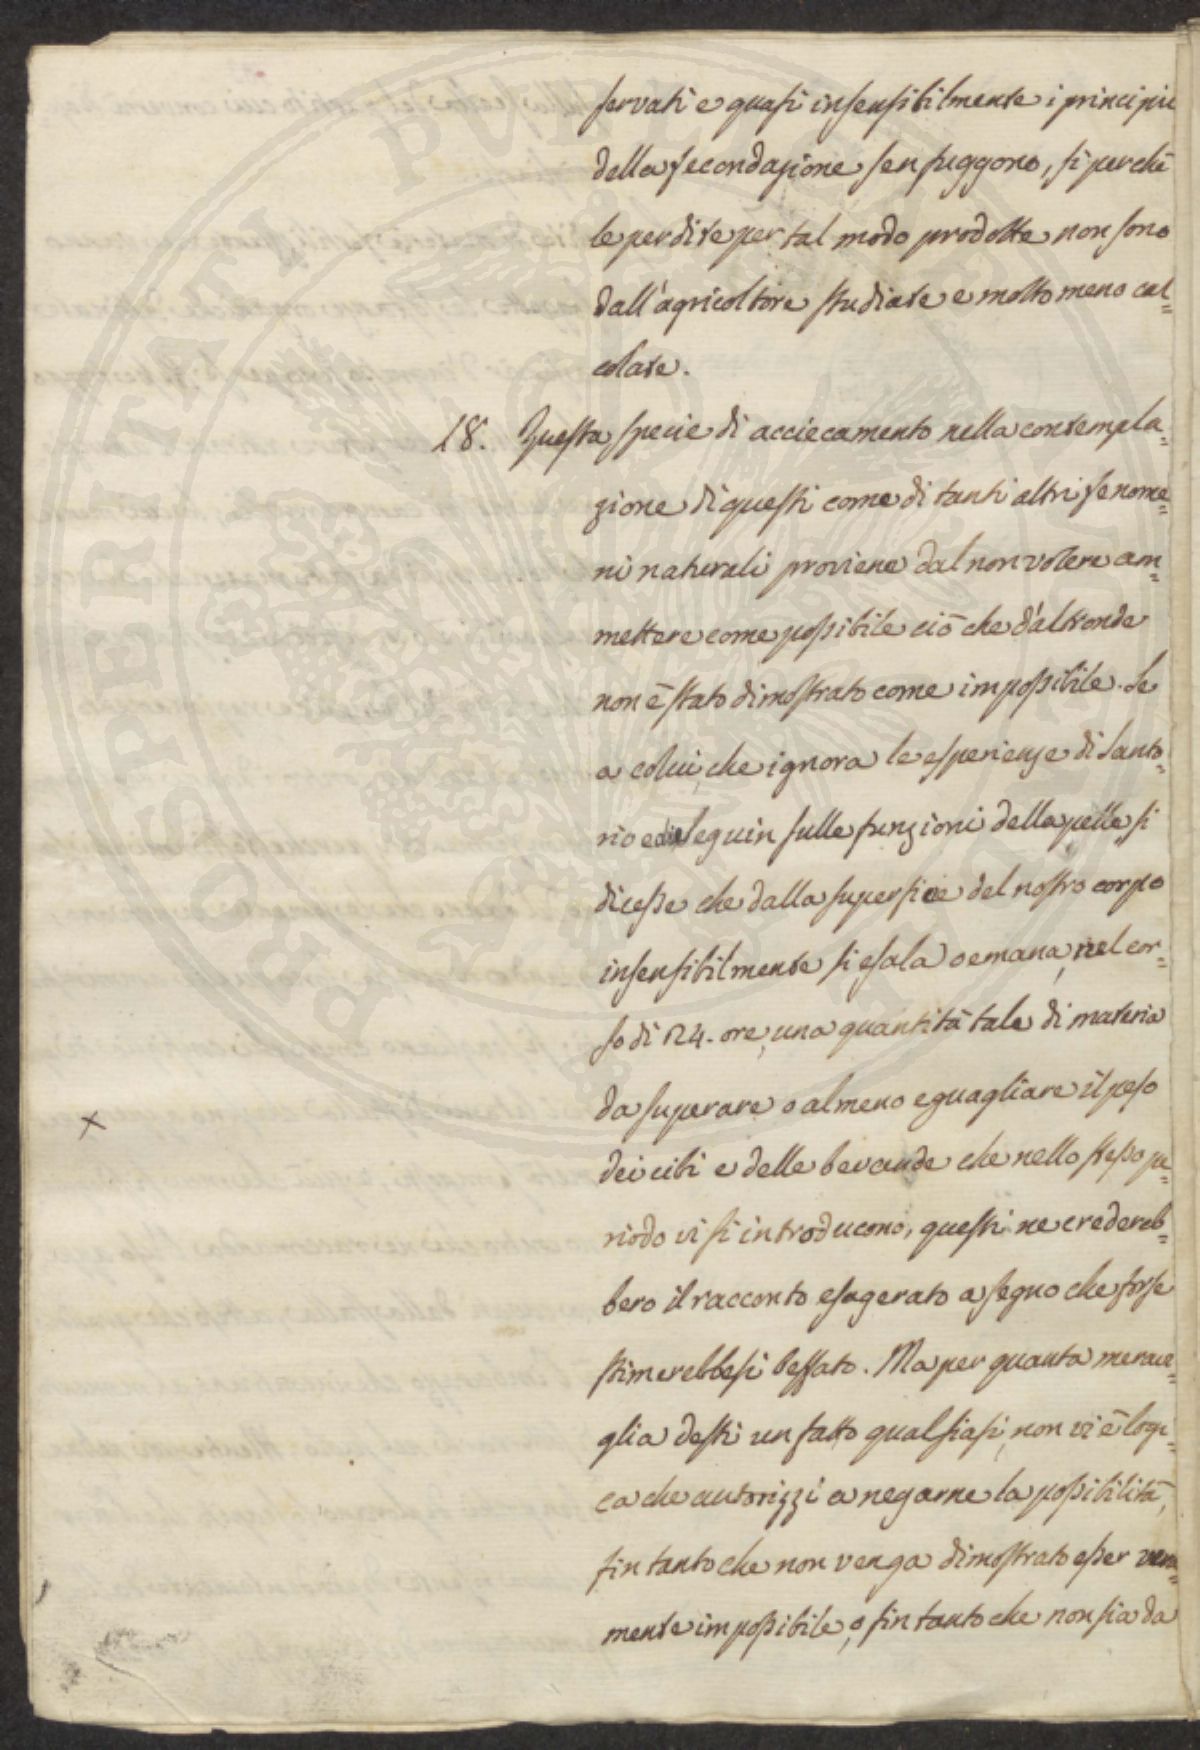 servati e quasi insensibilmente i principii
della fecondazione sen fuggono, sì perchè
le perdite per tal modo prodotte non sono
dall'agricoltore studiate e molto meno cal=
colate.
18. Questa specie di acciecamento nella contempla=
zione di questi come di tanti altri fenome=
ni naturali proviene dal non volere am=
mettere come possibile ciò che d'altronde
non è stato dimostrato come impossibile. Se
a colui, che ignora le esperienze di Santo=
rio e di Seguin sulle funzioni della pelle si
dicesse che dalla superficie del nostro corpo
insensibilmente si esala o emana, nel cor=
so di 24. ore, una quantità tale di materia
da superare o almeno eguagliare il peso
dei cibi e delle bevande che nello stesso pe=
riodo vi si introducono, questi ne credereb=
bero il racconto esagerato a segno che forse
stimerebbesi beffato. Ma per quanta meravi=
glia desti un fatto qualsiasi, non vi è logi=
ca che autorizzi a negarne la possibilità,
fintanto che non venga dimostrato esser vera=
mente impossibile, o fin tanto che non sia da
x
PROSPERITATI PUBLICAE